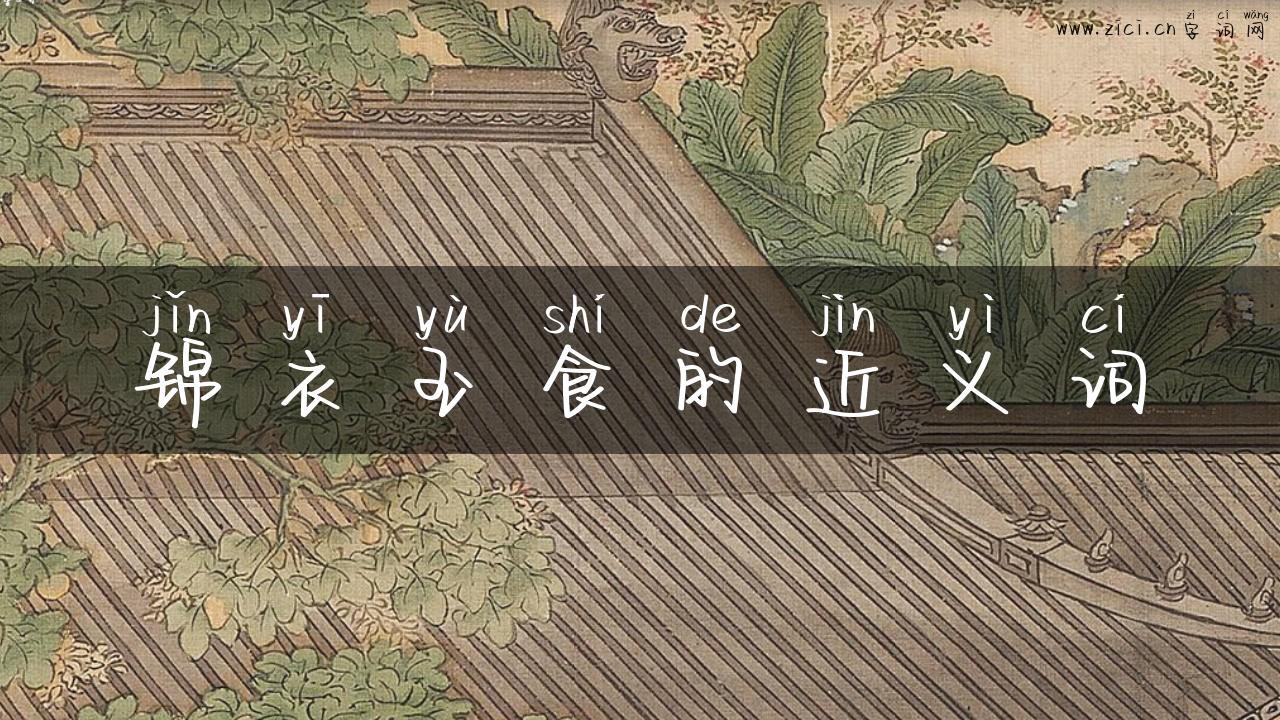 zì cí wǎng
www.zici.cn 字词网
jǐn yī yù shí de jìn yì cí
锦衣玉食的近义词